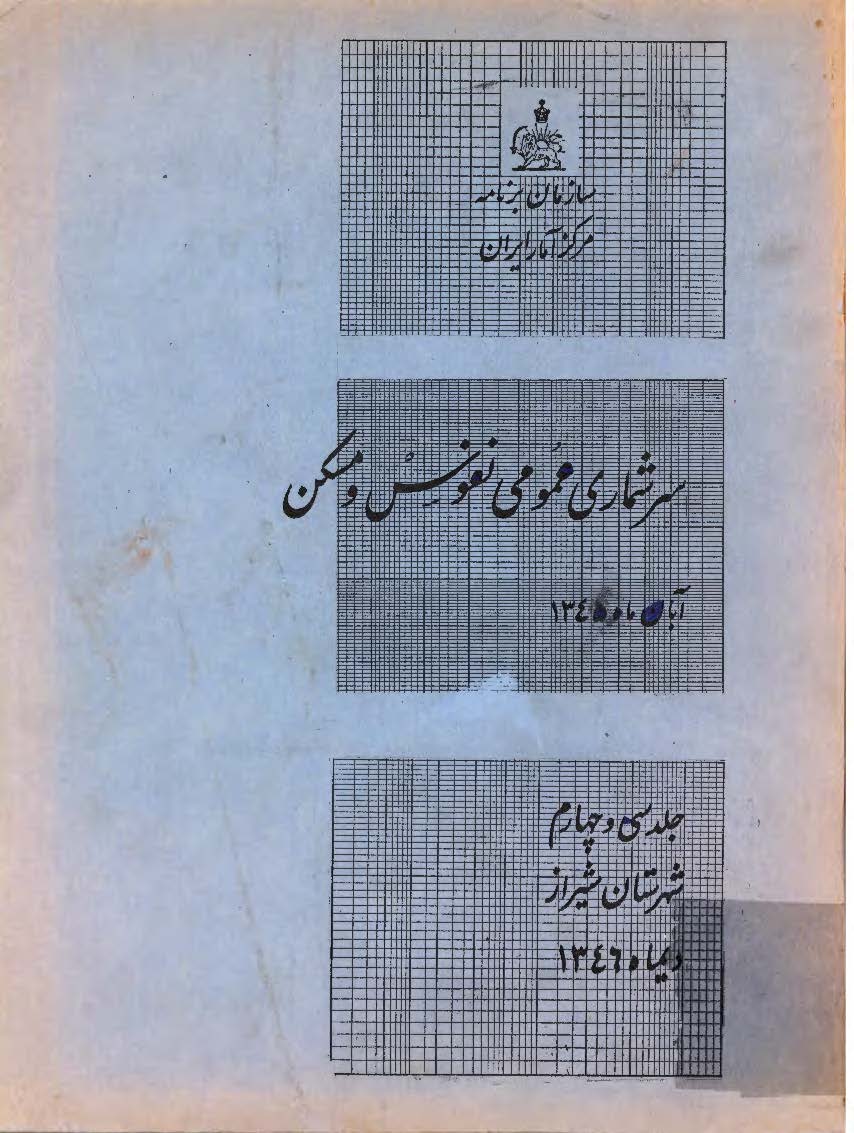 سازمان برنامه
مرکز آمار ایران
سرشماری عمومی نفوس و مسکن
آبان ماه ۱۳۴۵
جلد سی و چهارم
شهرستان شیراز
دیماه ۱۳۴۶